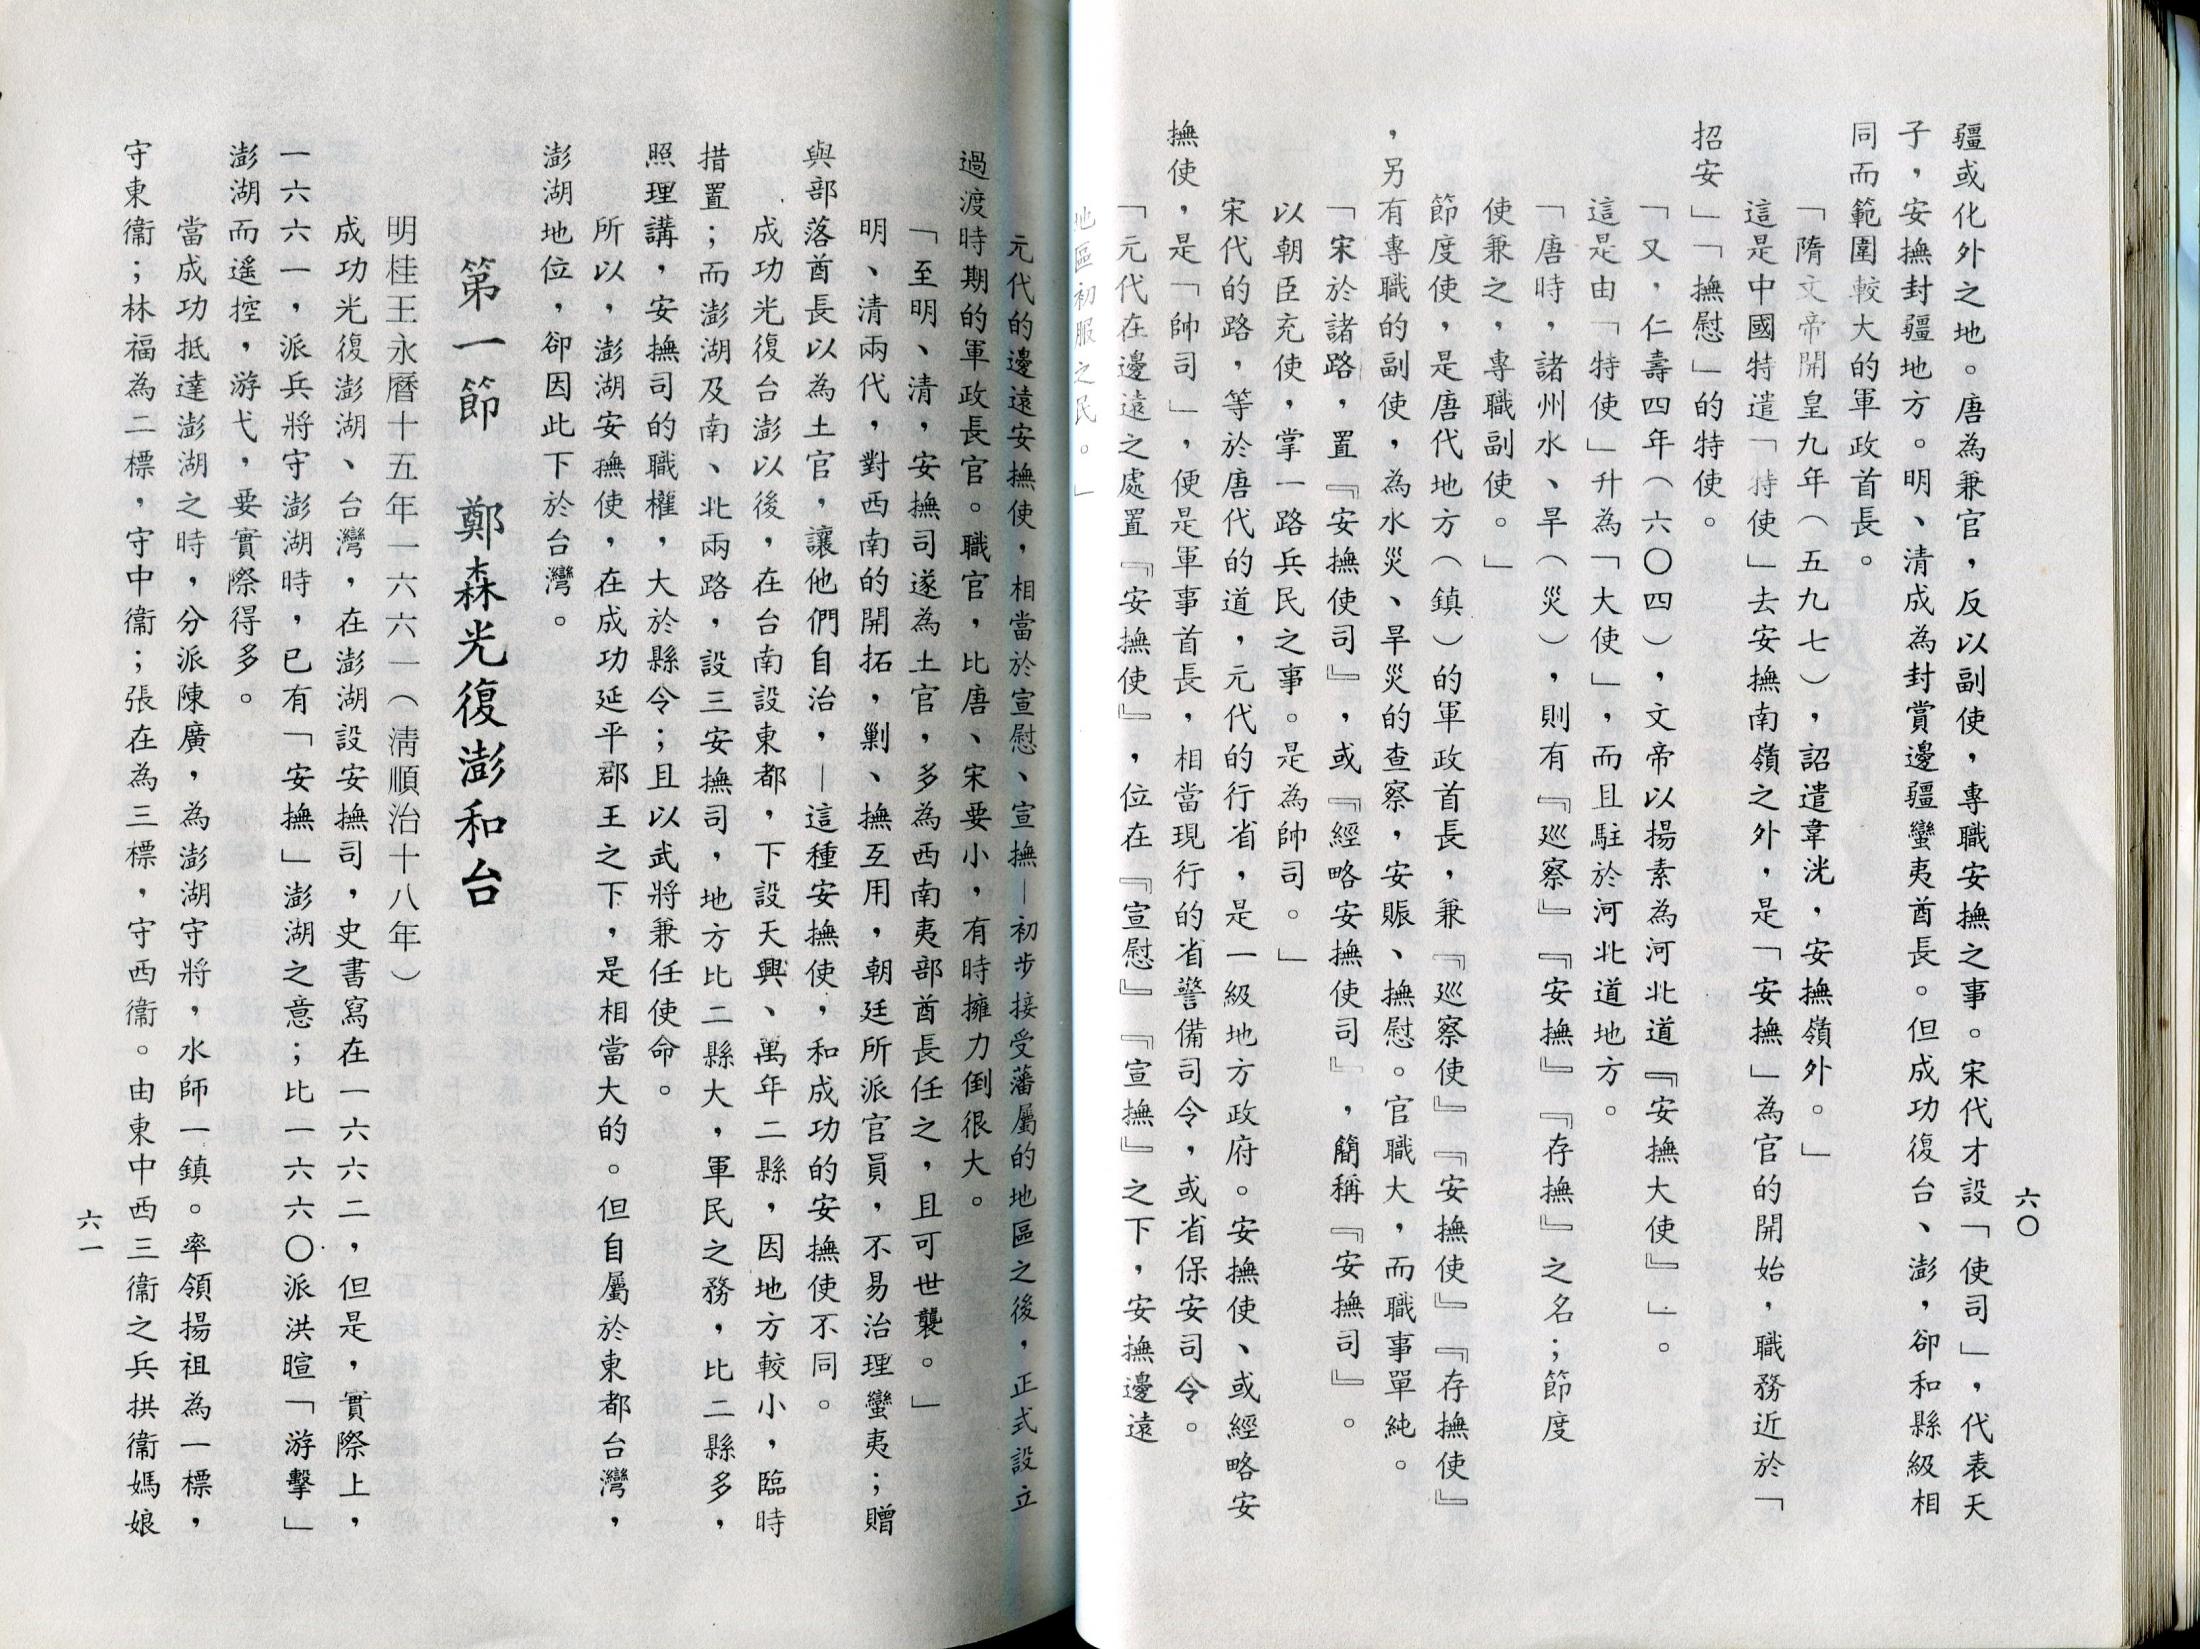 六〇
疆或化外之地。唐為兼官，反以副使，專職安撫之事。宋代才設「使司」，代表天
子，安撫封疆地方。明、清成為封賞邊疆蠻夷酋長。但成功復台、澎，卻和縣級相
同而範圍較大的軍政首長。
「隋文帝開皇九年（五九七），詔遣韋洸，安撫嶺外。」
這是中國特遣「特使」去安撫南嶺之外，是「安撫」為官的開始，職務近於「
招安」「撫慰」的特使。
「又，仁壽四年（六〇四），文帝以揚素為河北道『安撫大使』」。
這是由「特使」升為「大使」，而且駐於河北道地方。
「唐時，諸州水、旱（災），則有『巡察』『安撫』『存撫』之名；節度
使兼之，專職副使。」
節度使，是唐代地方（鎮）的軍政首長，兼『巡察使』『安撫使』『存撫使』
，另有專職的副使，為水災、旱災的查察，安賑、撫慰。官職大，而職事單純。
「宋於諸路，置『安撫使司』，或『經略安撫使司』，簡稱『安撫司』。
以朝臣充使，掌一路兵民之事。是為帥司。」
宋代的路，等於唐代的道，元代的行省，是一級地方政府。安撫使、或經略安
撫使，是「帥司」，便是軍事首長，相當現行的省警備司令，或省保安司令。
「元代在邊遠之處置『安撫使』，位在『宣慰』『宣撫』之下，安撫邊遠
地區初服之民。」
元代的邊遠安撫使，相當於宣慰、宣撫—初步接受藩屬的地區之後，正式設立
過渡時期的軍政長官。職官，比唐、宋要小，有時擁力倒很大。
「至明、清，安撫司遂為土官，多為西南夷部酋長任之，且可世襲。」
明、清兩代，對西南的開拓，剿、撫互用，朝廷所派官員，不易治理蠻夷；贈
與部落酋長以為土官，讓他們自治，—這種安撫使，和成功的安撫使不同。
成功光復台澎以後，在台南設東都，下設天興、萬年二縣，因地方較小，臨時
措置；而澎湖及南、北兩路，設三安撫司，地方比二縣大，軍民之務，比二縣多，
照理講，安撫司的職權，大於縣令；且以武將兼任使命。
所以，澎湖安撫使，在成功延平郡王之下，是相當大的。但自屬於東都台灣，
澎湖地位，卻因此下於台灣。
第一節　鄭森光復澎和台
明桂王永曆十五年一六六一（清順治十八年）
成功光復澎湖、台灣，在澎湖設安撫司，史書寫在一六六二，但是，實際上，
一六六一，派兵將守澎湖時，已有「安撫」澎湖之意；比一六六〇派洪暄「游擊」
澎湖而遙控，游弋，要實際得多。
當成功抵達澎湖之時，分派陳廣，為澎湖守將，水師一鎮。率領揚祖為一標，
守東衞；林福為二標，守中衞；張在為三標，守西衞。由東中西三衞之兵拱衞媽娘
六一